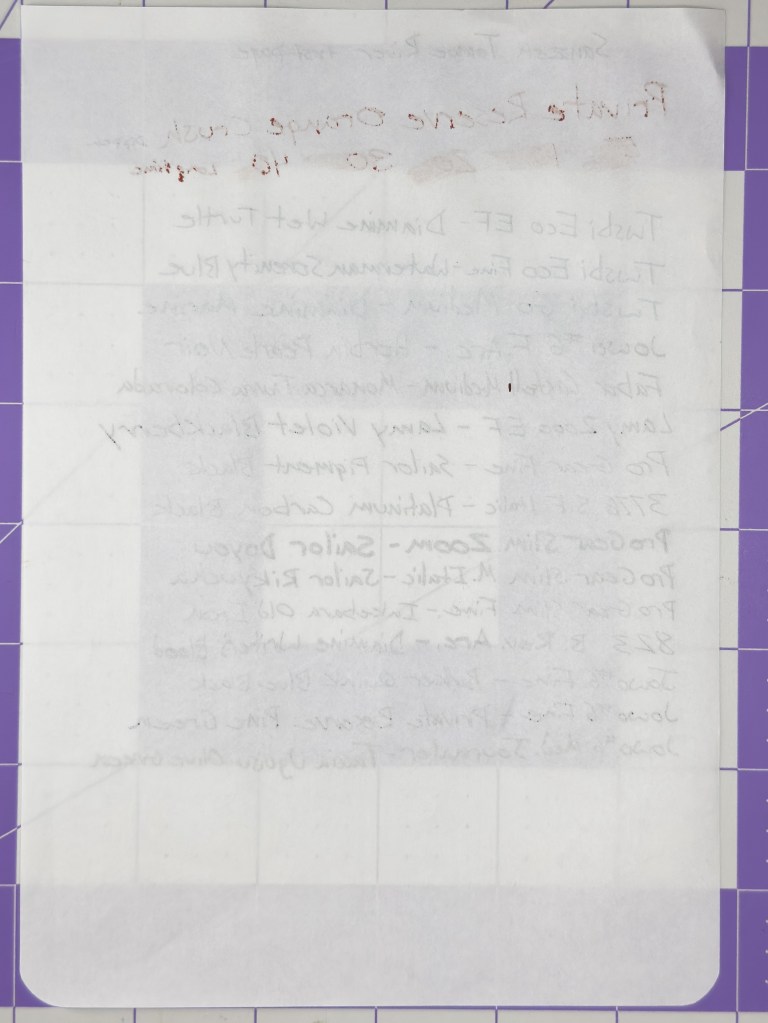 Sanzen Tomoe River first page
Private Reserve Orange Crush
20 30 40 Longtime
Twsbi Eco EF - Diamine Wet Turtle
Twsbi Eco Fine - Waterman Serenity Blue
Twsbi Go Medium - Diamine Marine
Jowo #6 Fine - Herbin Pearle Noir
Faber Castell Medium - Monarca Tinta Colorada
Lamy 2000 EF - Lamy Violet Blackberry
Pro Gear Fine - Sailor Pigment Black
3776 S.F. Italic - Platinum Carbon Black
Pro Gear Slim Zoom - Sailor Doyou
Pro Gear Slim M. Italic - Sailor Rikyucha
Pro Gear Slim Fine - Inkebara Old Iron
823 B. Rev. Arc. - Diamine Writer's Blood
Jowo #6 Fine - Parker Quink Blue Black
Jowo #6 Fine - Private Reserve Pine Green
Jowo #6 Med. Journaler - Taccia Uguisu Olive Green